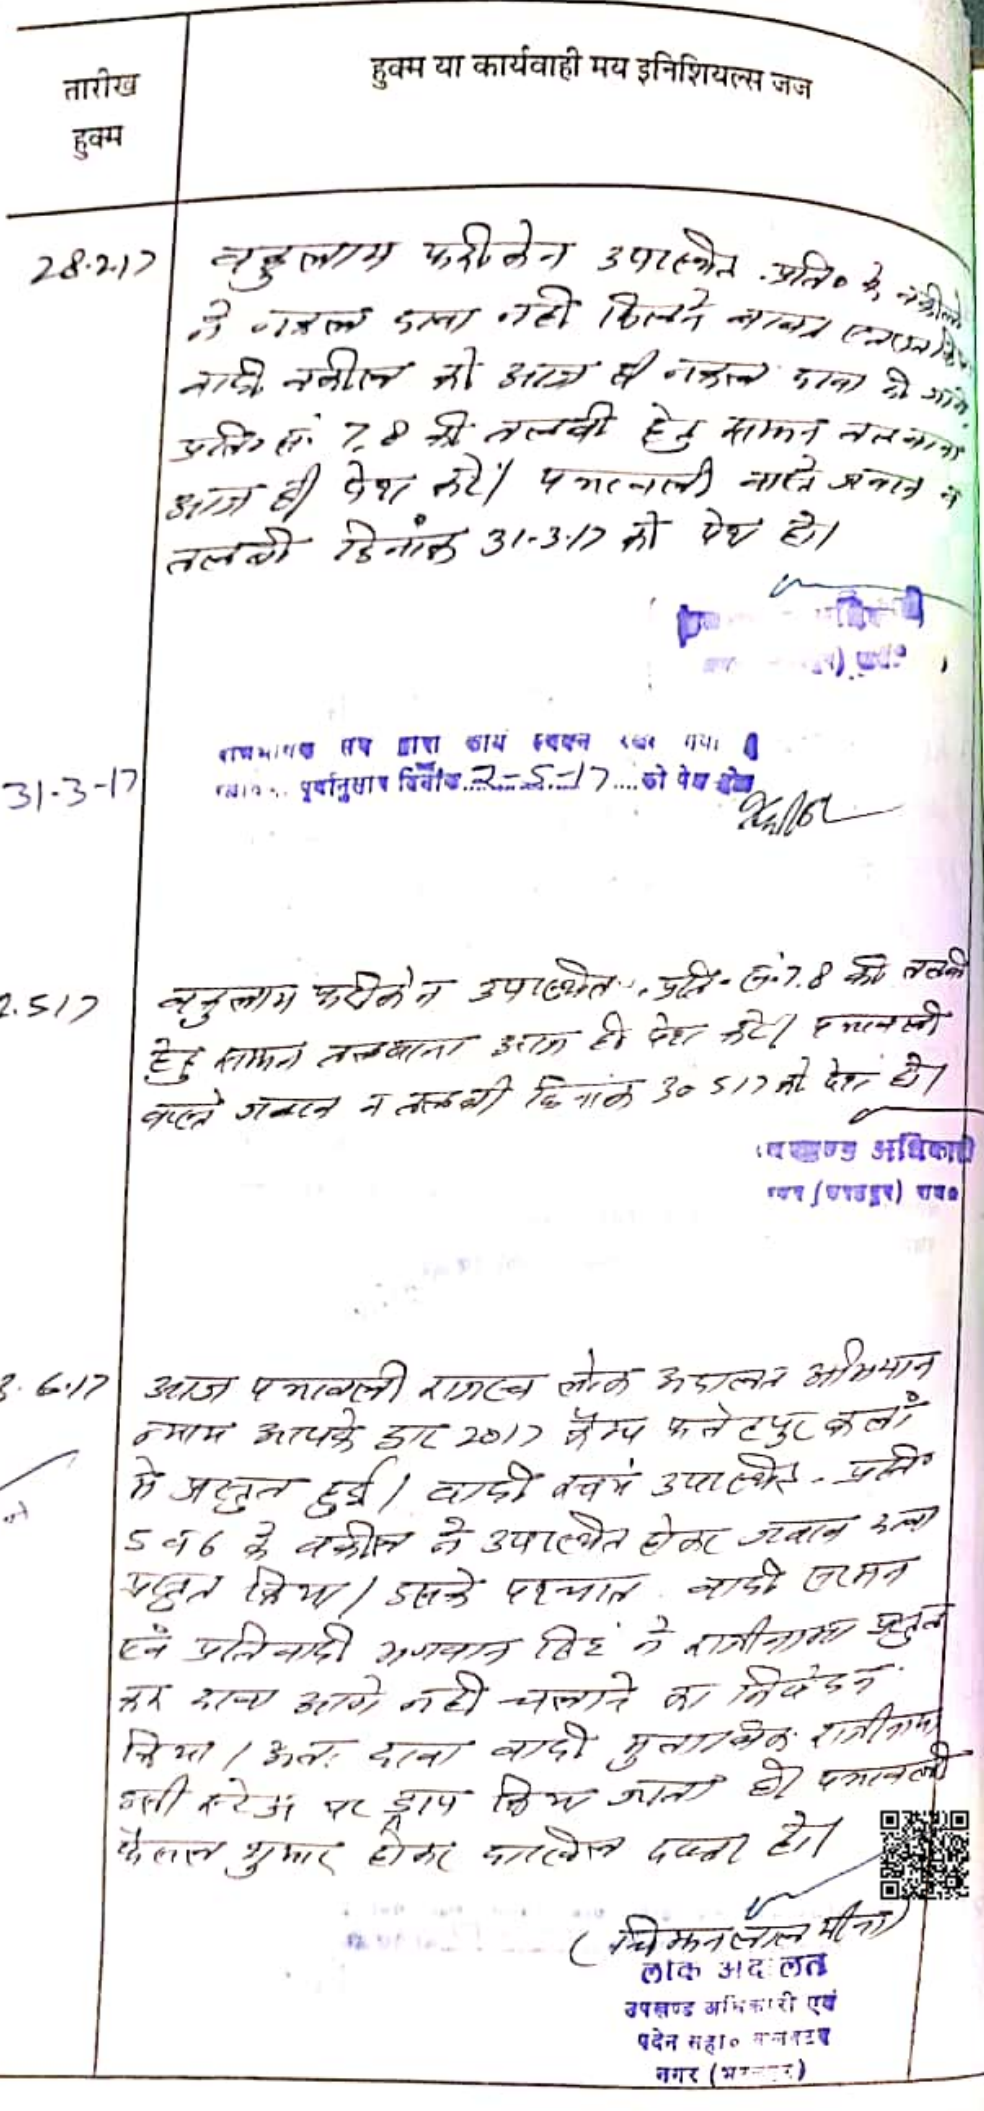 तारीख
हुक्म
हुक्म या कार्यवाही मय इनिशियल्स जज
28.2.17
वकुलाय फरीकेन उपस्थित. प्रति० के वकील
ने नकल दावा नहीं मिलने बाबत
वादी वकील को आज ही नकल दावा दी जावे
प्रति० सं. 7,8 की तलवी हेतु सामन तलवाना
आज ही पेश करें। पत्रावली वास्ते जवाव व
तलवी दिनांक 31-3-17 को पेश हो।
31-3-17
संघ द्वारा कार्य स्थगन रखा गया
पूर्वानुसार दिनांक 2-5-17 को पेश होवे
2.5.17
वकुलाय फरीकेन उपस्थित. प्रति. सं. 7.8 की तलवी
हेतु सामन तलवाना आज ही पेश करें। पत्रावली
वास्ते जवाव व तलवी दिनांक 30.5.17 को पेश हो।
उपखण्ड अधिकारी
नगर (भरतपुर) राज०
6.17
आज पत्रावली राजस्व लोक अदालत अभियान
न्याय आपके द्वार 2017 कैम्प फतेहपुर कलाँ
मे प्रस्तुत हुई। वादी स्वयं उपस्थित. प्रति०
5 व 6 के वकील ने उपस्थित होकर जवाव दावा
प्रस्तुत किया। इसके पश्चात वादी
एवं प्रतिवादी भगवान सिंह ने राजीनामा प्रस्तुत
कर दावा आगे नहीं चलाने का निवेदन
किया। अतः दावा वादी मुताबिक राजीनामा
इसी स्टेज पर ड्राप किया जाता है। पत्रावली
फैसल शुमार होकर दाखिल दफ्तर हो।
(चिमनलाल मीना)
लोक अदालत
उपखण्ड अधिकारी एवं
पदेन सहा०
नगर (भरतपुर)